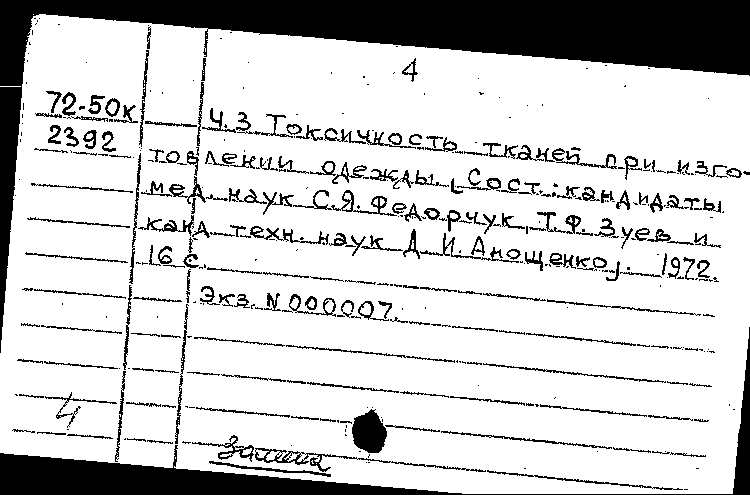 4
72-50к
2392
Ч.3 Токсичность тканей при изго-
товлении одежды. [Сост.: кандидаты
мед. наук С.Я. Федорчук, Т.Ф. Зуев и
канд техн. наук Д.И. Анощенко]. 1972.
16 с.
Экз. N 000007.
4